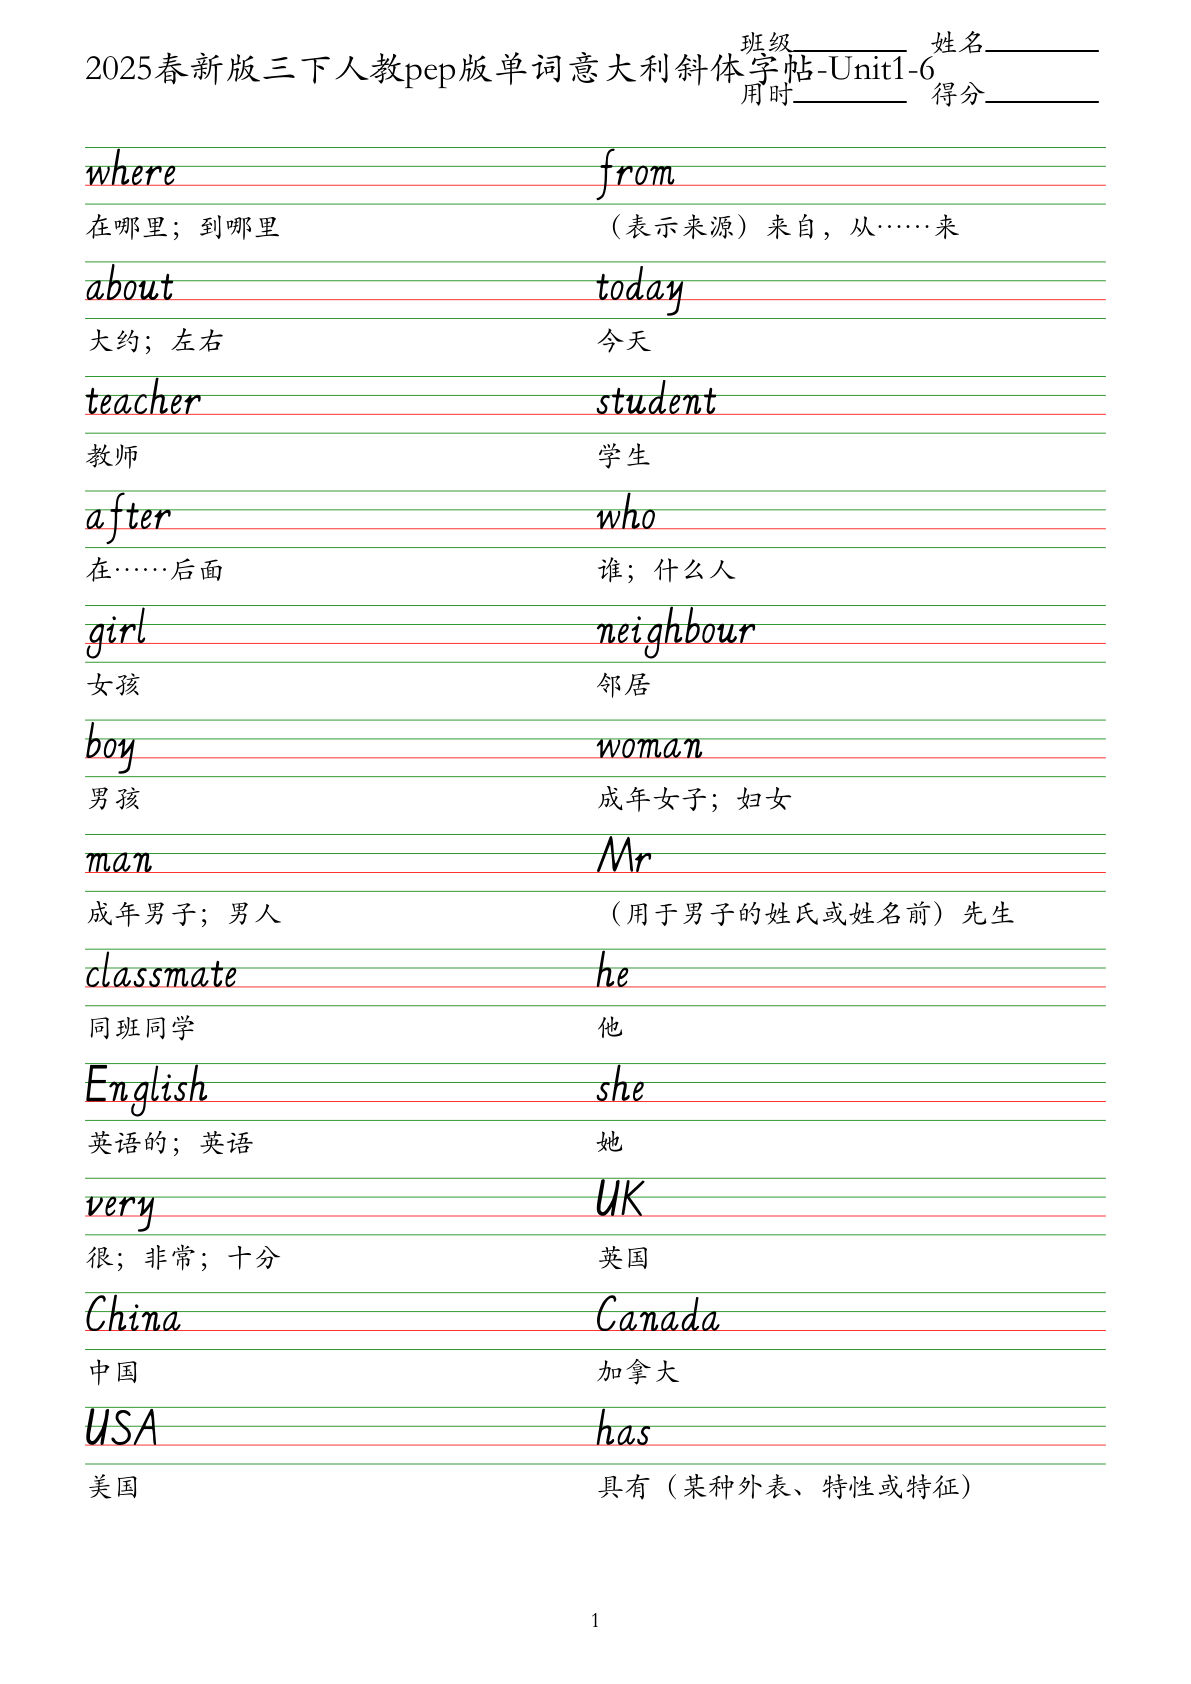 班级 姓名
2025春新版三下人教pep版单词意大利斜体字帖-Unit1-6
用时 得分
where from
在哪里；到哪里 （表示来源）来自，从……来
about today
大约；左右 今天
teacher student
教师 学生
after who
在……后面 谁；什么人
girl neighbour
女孩 邻居
boy woman
男孩 成年女子；妇女
man Mr
成年男子；男人 （用于男子的姓氏或姓名前）先生
classmate he
同班同学 他
English she
英语的；英语 她
very UK
很；非常；十分 英国
China Canada
中国 加拿大
USA has
美国 具有（某种外表、特性或特征）
1